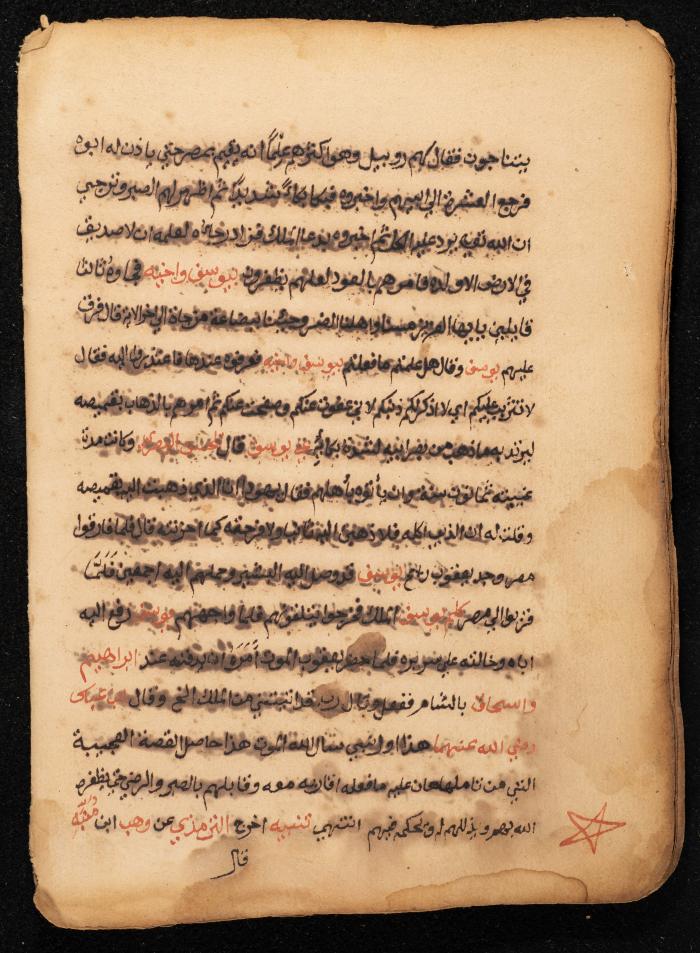 يتناجون فقال كهم روبيل وهو اكثرهم علماً انه يقيم بمصر حتي ياذن له ابوه
فرجع العشرة الي ابيهم واخبروه فبكا بكاءً شديداً ثم اظهر لهم الصبر وترجي
ان الله تقيه يرد عليه الكل ثم اخبروه بدعا الملك فزاد رجاءه لعلمه ان لا صديق
في الارض الا ولده فامرهم بالعود لعلهم يظفرون بيوسف واخيه فجاوه ثالثا
قايلين يايها العزيز مسنا واهلنا الضر وجئنا ببضاعة مزجاة الي اخر الاية قال فرق
عليهم يوسف وقال هل علمتم ما فعلتم بيوسف واخيه فعرفوه عندها فاعتذروا اليه فقال
لا تثريب عليكم اي لا اذكر لكم ذنبكم لاني عفوت عنكم وصفحت عنكم ثم امرهم بالذهاب بقميصه
ليرتد به ما ذهب من بصر ابيه لشدة بكائه يوسف قال الحسن البصري وكانت مدة
غيبته ثمانون سنة وان ياتوه باهلهم فقال يهودا انا الذي ذهبت اليه بقميصه
وقلت له ان الذيب اكله فلا ذهبن اليه ثانيا ولافرحنه كما احزنته قال فلما فارقوا
مصر وجد يعقوب ريح يوسف ثم وصل اليه البشير وحملهم اليه اجمعين فَلَمَّا
قربوا الي مصر كلم يوسف الملك فخرجوا يتلقونهم فلما واجههم يوسف رفع اليه
اباه وخالته علي سريره فلما حضر يعقوب الموت أَمَرَهُ ان يدفنه عند ابراهيم
واسحاق بالشام ففعل وقال رب قد اتيتني من الملك الخ وقال ابن عباس
رضي الله عنهما هذا اول نبي سال الله الموت هذا حاصل القصة العجيبة
التي من تاملها هان عليه ما فعله اقاربه معه وقابلهم بالصبر والرضي حتي يظفره
الله بهم ويذللهم له ويحكمه فيهم انتهي تنبيه اخرج الترمذي عن وهب ابن مُنَبِّه
قال